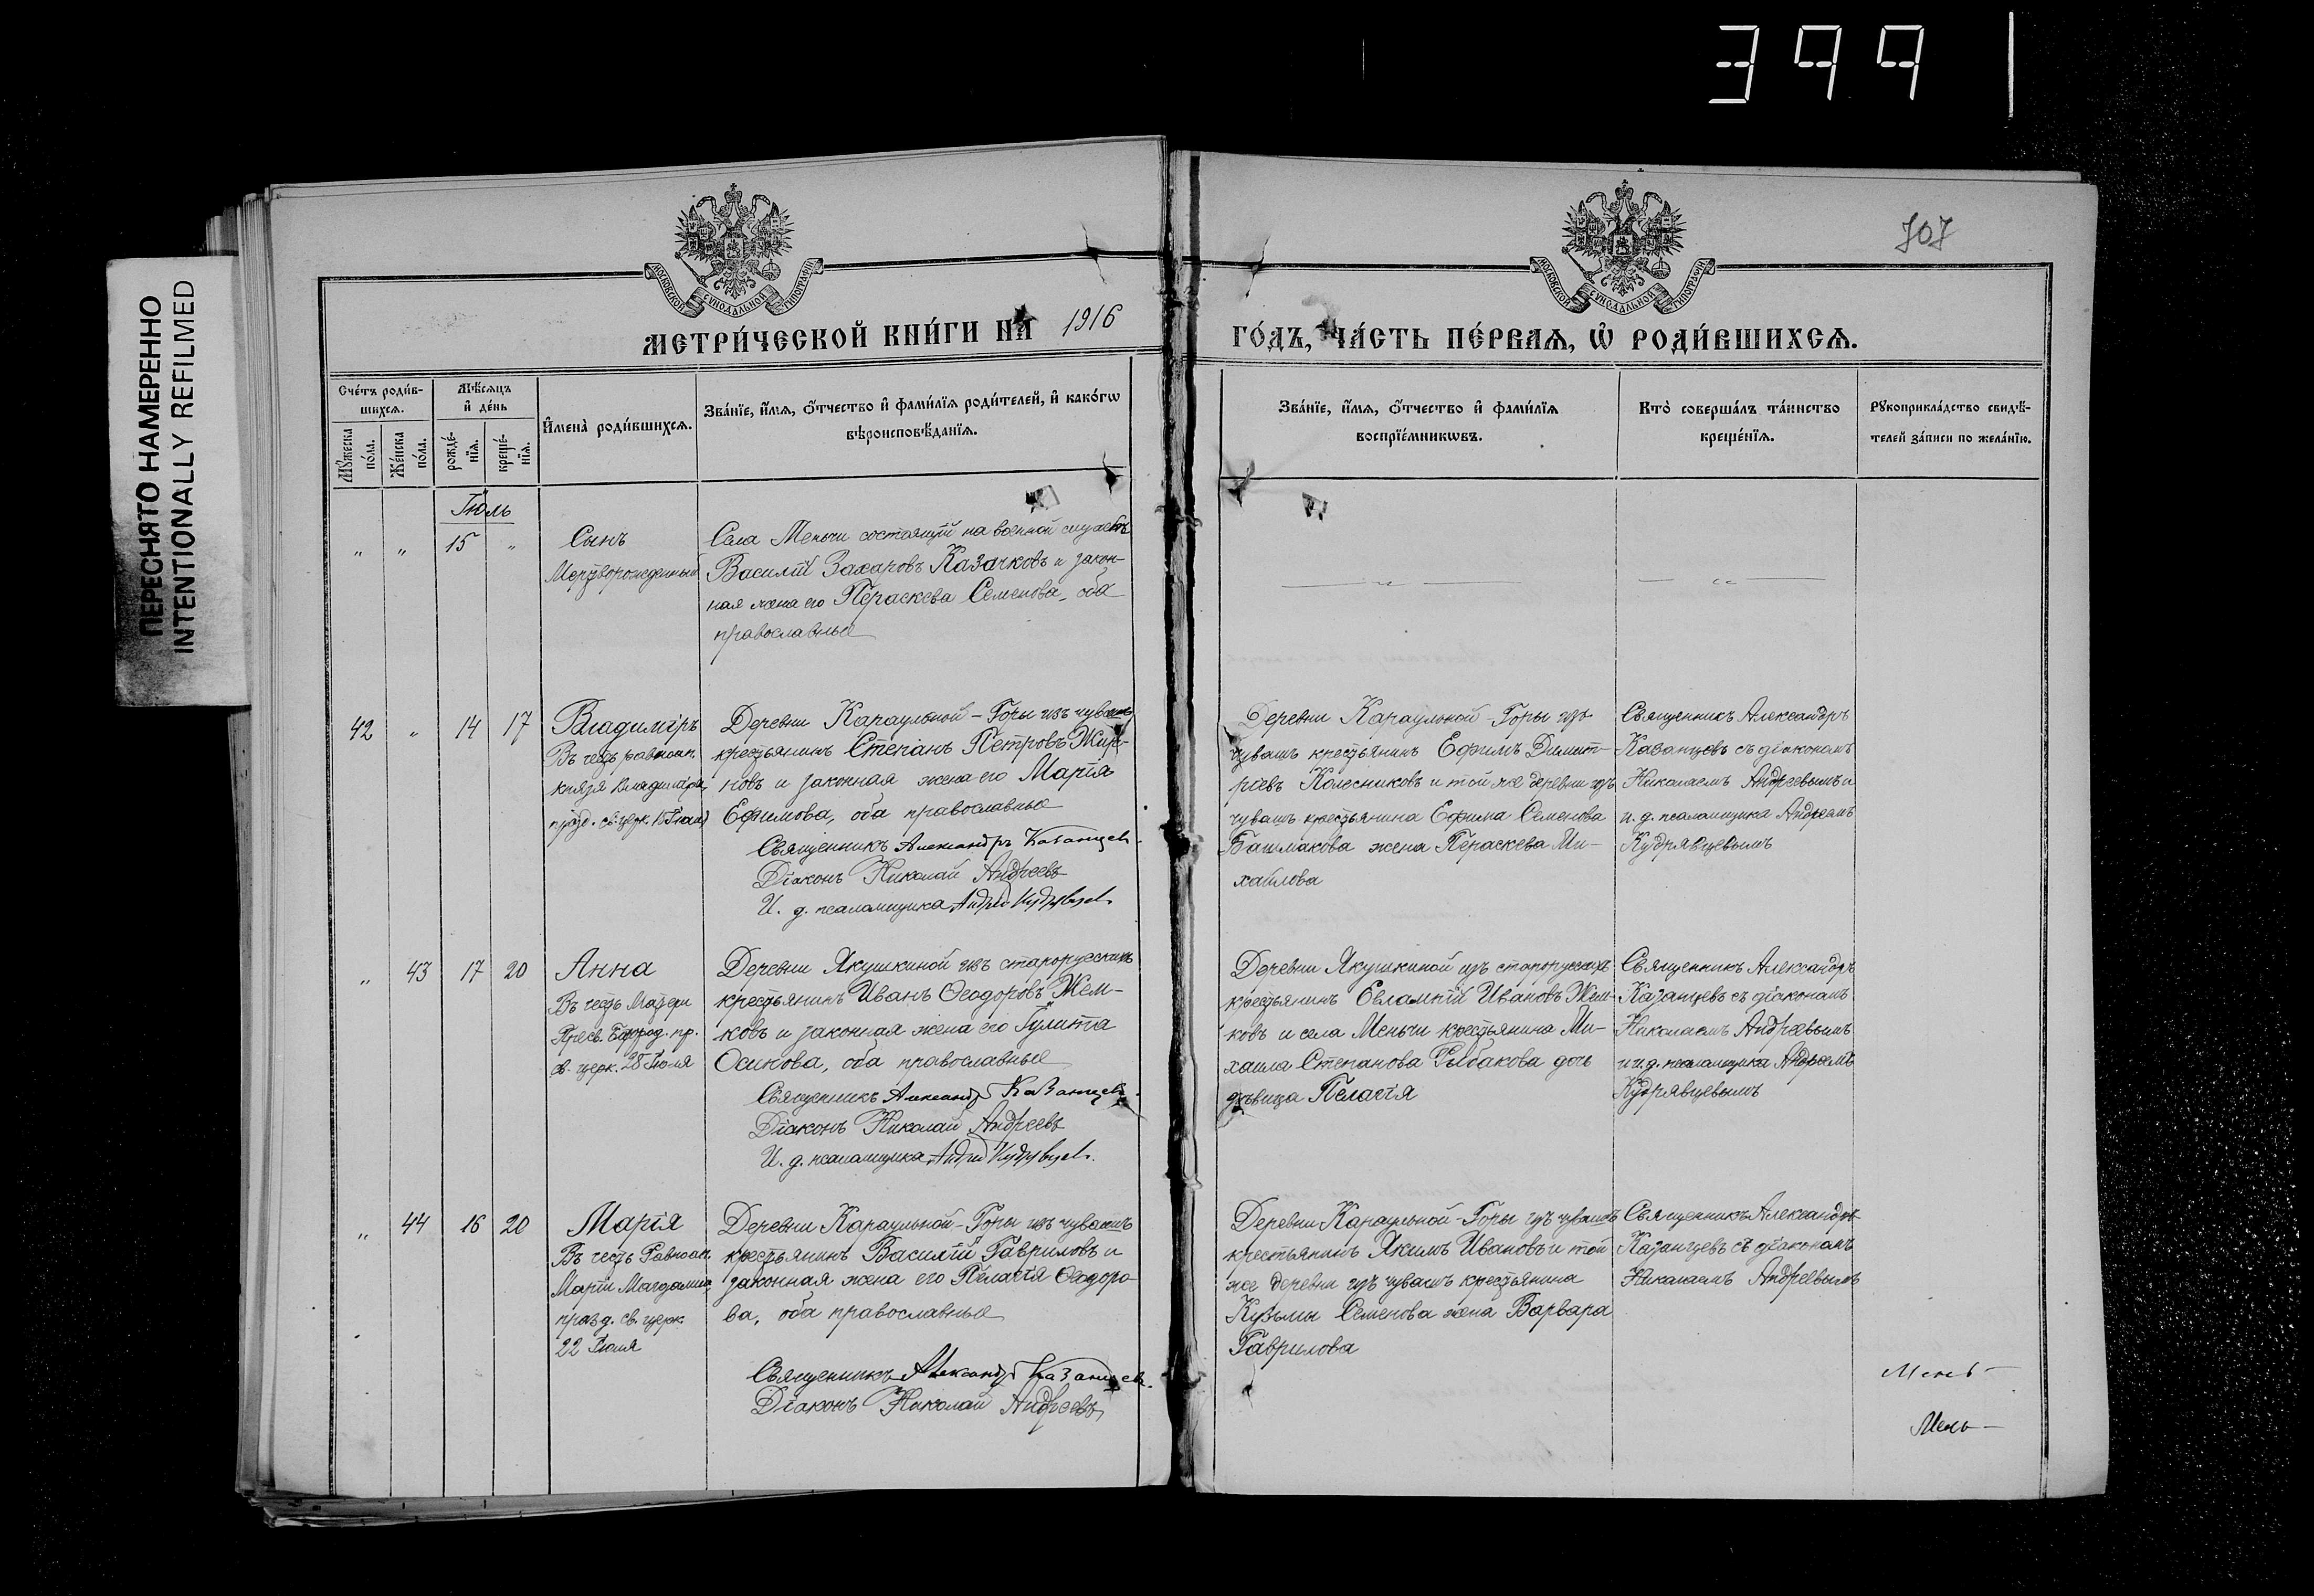 399
ПЕРЕСНЯТО НАМЕРЕННО
INTENTIONALLY REFILMED
707
МОСКОВСКОЙ СУНОДАЛЬНОЙ ТИПОГРАФІИ
МОСКОВСКОЙ СУНОДАЛЬНОЙ ТИПОГРАФІИ
МЕТРИ́ЧЕСКОЙ КНИ́ГИ НА 1916
ГО́ДЪ, ЧА́СТЬ ПЕ́РВАѦ, Ѡ РОДИ́ВШИХСѦ.
Сче́тъ роди́в-
шихсѧ.
Мꙋ́жеска
по́ла.
Же́нска
по́ла.
Мѣ́сѧцъ
и҆ де́нь
рожде́-
нїѧ.
креще́-
нїѧ.
И҆мена̀ роди́вшихсѧ.
Зва́нїе, и҆́мѧ, ѻ҆́тчество и҆ фами́лїѧ роди́телей, и҆ како́гѡ
вѣроисповѣ́данїѧ.
Зва́нїе, и҆́мѧ, ѻ҆́тчество и҆ фами́лїѧ
воспрїе́мникѡвъ.
Кто̀ соверша́лъ та́инство
креще́нїѧ.
Рꙋкоприкла́дство свидѣ́-
телей за́писи по жела́нїю.
Іюль
" " 15 "
Сынъ
Мертворожденный
Села Меньчи состоящій на военной службѣ
Василій Захаровъ Казачковъ и закон-
ная жена его Параскева Семенова, оба
православные
— " —
— " —
42 " 14 17
Владиміръ
Въ честь равноап.
князя Владиміра,
празд. св. церк. 15 Іюля
Деревни Караульной-Горы изъ чувашъ
крестьянинъ Степанъ Петровъ
новъ и законная жена его Марія
Ефимова, оба православные
Священникъ Александръ Казанцевъ.
Діаконъ Николай Андреевъ
И. д. псаломщика Андрей Кудрявцевъ
Деревни Караульной-Горы изъ
чувашъ крестьянинъ Ефимъ Димит-
ріевъ Колесниковъ и той же деревни изъ
чувашъ крестьянина Ефима Семенова
Башмакова жена Параскева Ми-
хайлова
Священникъ Александръ
Казанцевъ съ діакономъ
Николаемъ Андреевымъ и
и. д. псаломщика Андреемъ
Кудрявцевымъ
" 43 17 20
Анна
Въ честь Матери
Пресв. Богород. пр.
св. церк. 25 Іюля
Деревни Якушкиной изъ старорусскихъ
крестьянинъ Иванъ Ѳеодоровъ Жем-
ковъ и законная жена его Іулита
Осипова, оба православные
Священникъ Александръ Казанцевъ.
Діаконъ Николай Андреевъ
И. д. псаломщика Андрей Кудрявцевъ.
Деревни Якушкиной изъ старорусскихъ
крестьянинъ Евлампій Ивановъ Жем-
ковъ и села Меньчи крестьянина Ми-
хаила Степанова Рыбакова дочь
дѣвица Пелагія
Священникъ Александръ
Казанцевъ съ діакономъ
Николаемъ Андреевымъ
и и. д. псаломщика Андреемъ
Кудрявцевымъ
" 44 16 20
Марія
Въ честь Равноап.
Маріи Магдалины,
празд. св. церк.
22 Іюля
Деревни Караульной-Горы изъ чувашъ
крестьянинъ Василій Гавриловъ и
законная жена его Пелагія Ѳеодоро-
ва, оба православные
Священникъ Александръ Казанцевъ.
Діаконъ Николай Андреевъ
Деревни Караульной-Горы изъ чувашъ
крестьянинъ Якимъ Ивановъ и той
же деревни изъ чувашъ крестьянина
Кузьмы Семенова жена Варвара
Гаврилова
Священникъ Александръ
Казанцевъ съ діакономъ
Николаемъ Андреевымъ